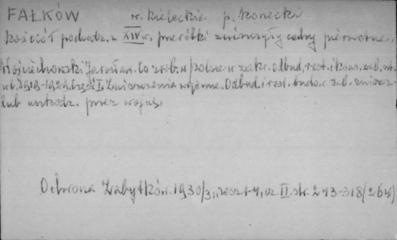 FAŁKÓW w. kieleckie p. konecki
kościół pochodz. z XIV w. przeróbki zniszczyły cechy pierwotne.
Wojciechowski Jarosław. Co zrob. w Polsce w zakr. odbud. rest. i kons. zab. nr.
ub. 1919-1929. Część I. Zniszczenia wojenne. Odbud. i rest. budo. z zab. zniszcz.
lub uszkodz. przez wojnę.
Ochrona Zabytków. 1930/31. zesz. 1-4, cz. II. str. 243-318 (264)